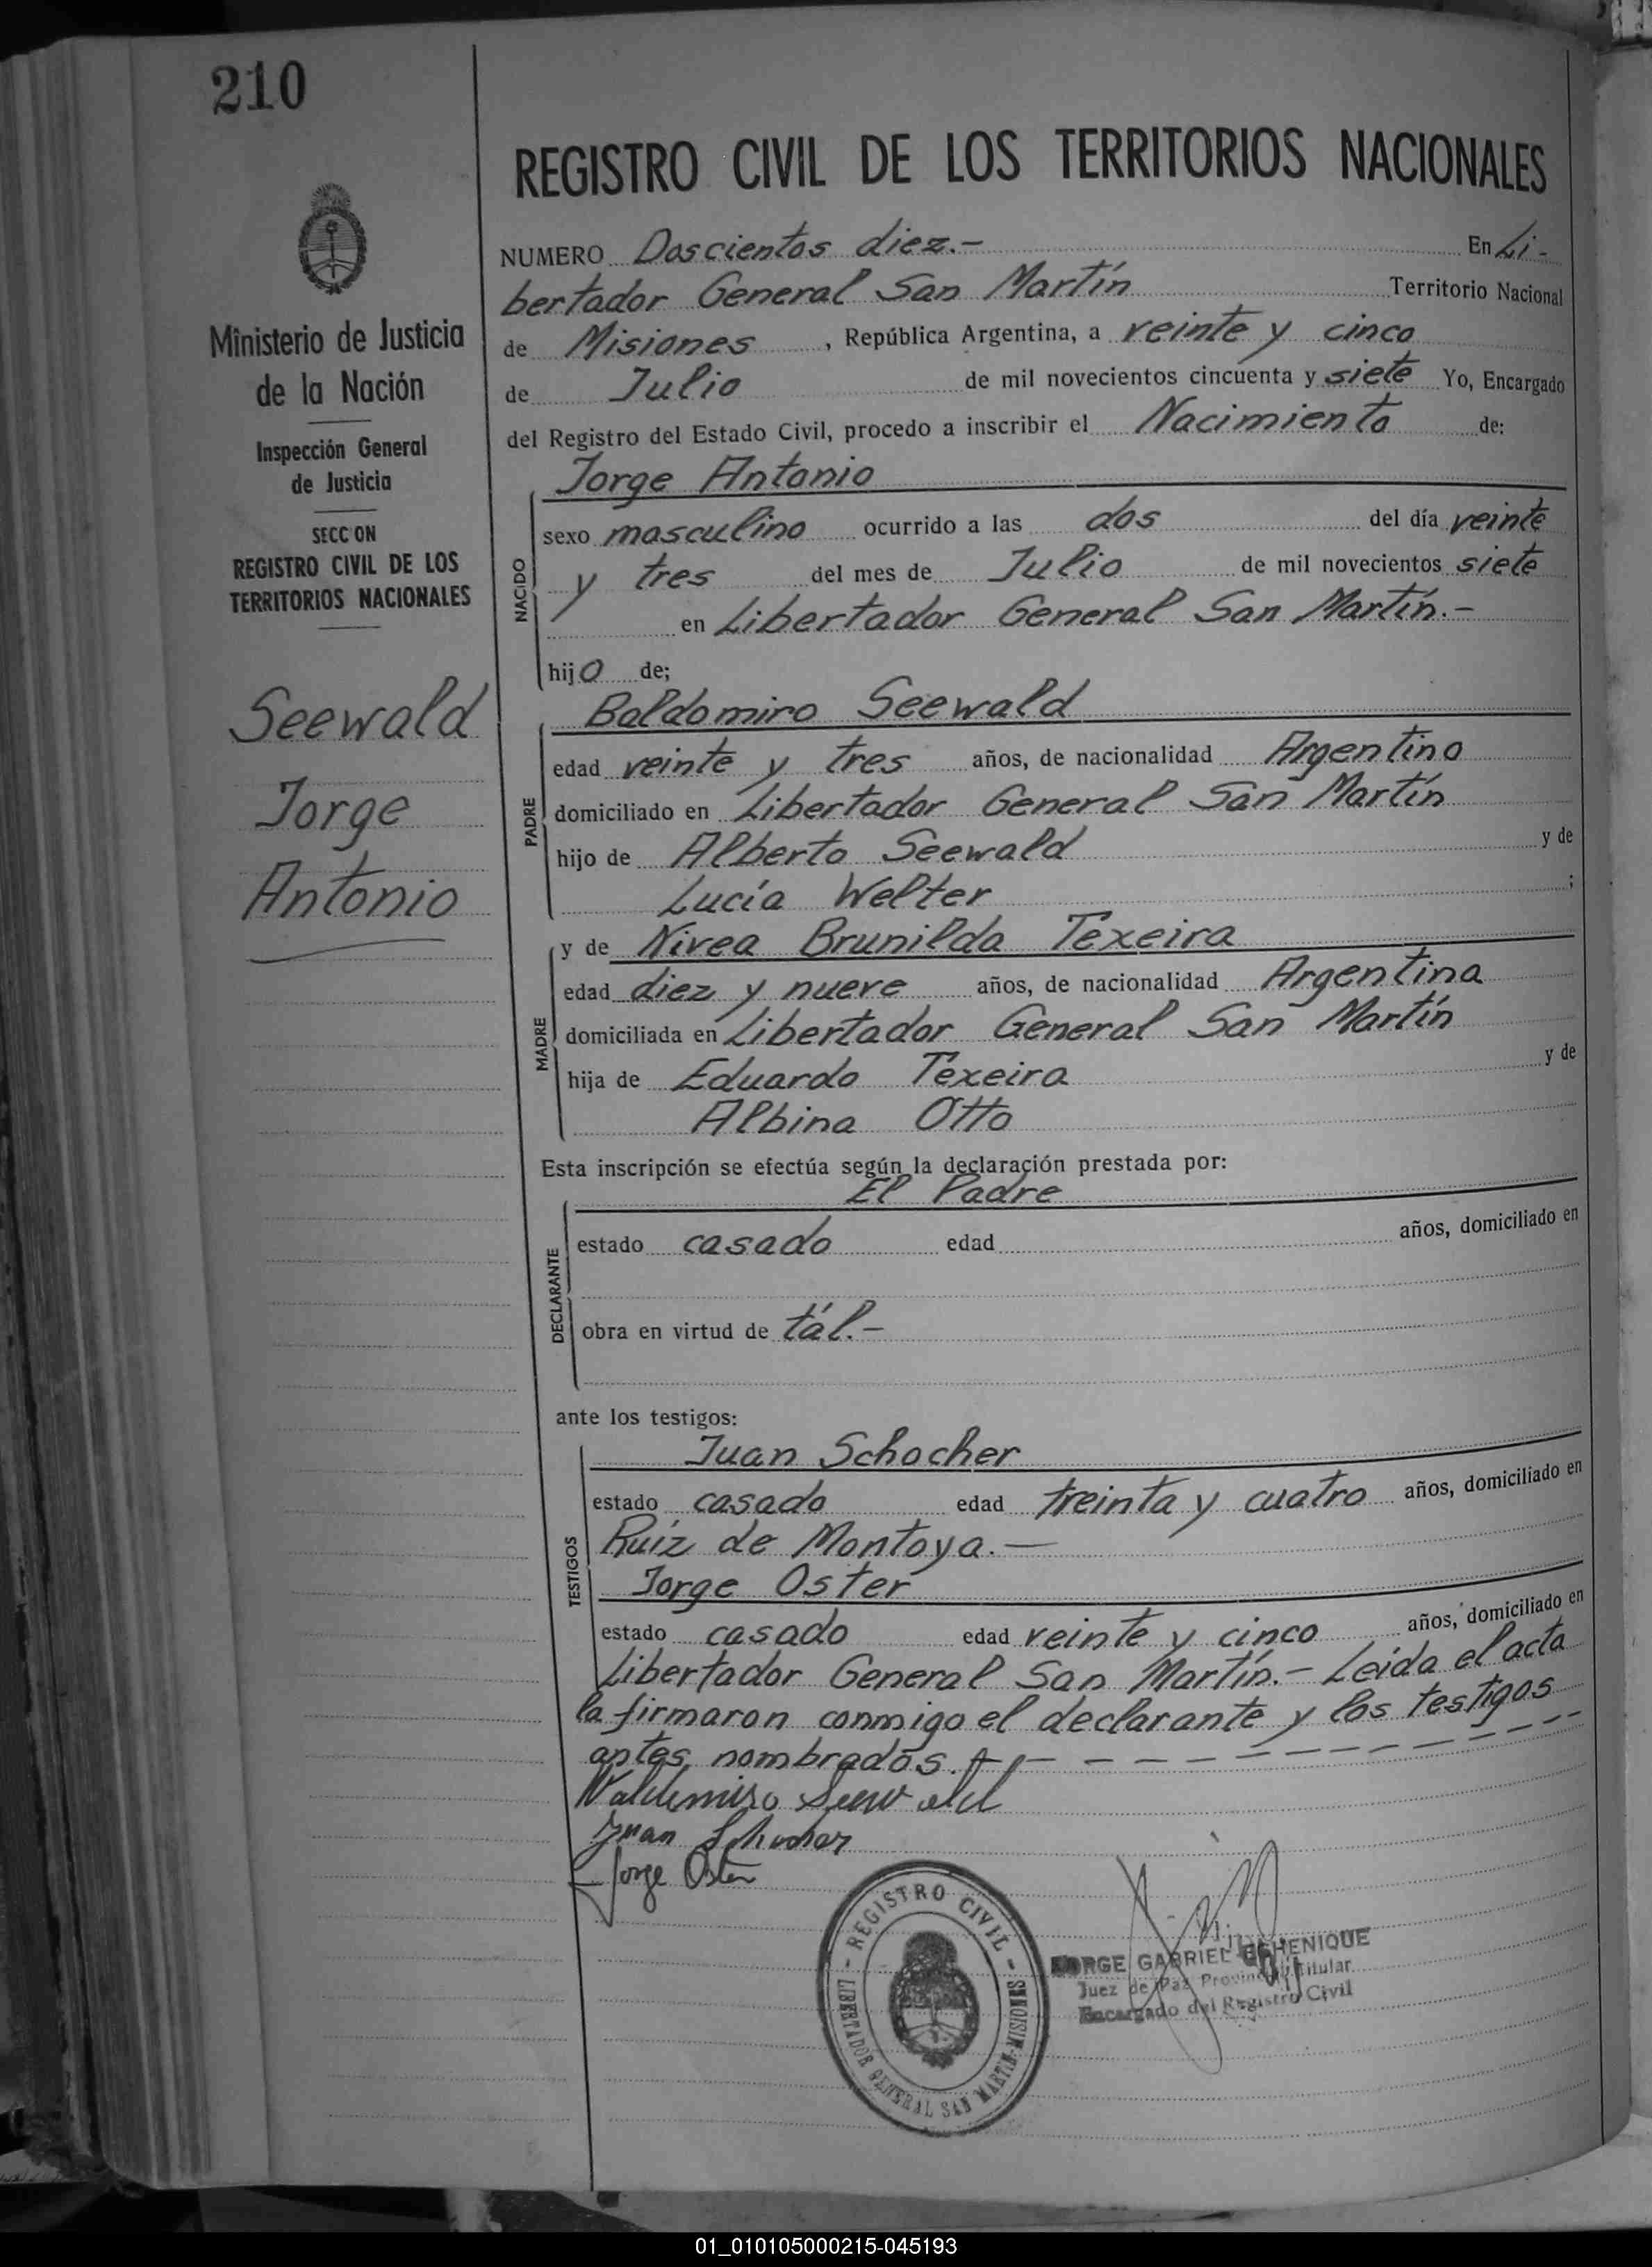 210
REGISTRO CIVIL DE LOS TERRITORIOS NACIONALES
Ministerio de Justicia
de la Nación
Inspección General
de Justicia
SECC ON
REGISTRO CIVIL DE LOS
TERRITORIOS NACIONALES
Seewald
Jorge
Antonio
NUMERO Doscientos diez.- En Li-
bertador General San Martín Territorio Nacional
de Misiones, República Argentina, a veinte y cinco
de Julio de mil novecientos cincuenta y siete Yo, Encargado
del Registro del Estado Civil, procedo a inscribir el Nacimiento de:
Jorge Antonio
NACIDO
sexo masculino ocurrido a las dos del día veinte
y tres del mes de Julio de mil novecientos siete
en Libertador General San Martín.-
hijo de;
Baldomiro Seewald
PADRE
edad veinte y tres años, de nacionalidad Argentino
domiciliado en Libertador General San Martín
hijo de Alberto Seewald y de
Lucía Welter ;
y de Nivea Brunilda Texeira
MADRE
edad diez y nueve años, de nacionalidad Argentina
domiciliada en Libertador General San Martín
hija de Eduardo Texeira y de
Albina Otto
Esta inscripción se efectúa según la declaración prestada por:
El Padre
DECLARANTE
estado casado edad años, domiciliado en
obra en virtud de tál.-
ante los testigos:
Juan Schocher
TESTIGOS
estado casado edad treinta y cuatro años, domiciliado en
Ruíz de Montoya.-
Jorge Oster
estado casado edad veinte y cinco años, domiciliado en
Libertador General San Martín.- Leida el acta
la firmaron conmigo el declarante y los testigos
antes nombrados.
Waldemiro Seewald
Juan Schocher
Jorge Oster
- REGISTRO CIVIL -
LIBERTADOR GENERAL SAN MARTIN-MISIONES
JORGE GABRIEL ECHENIQUE
Juez de Paz Provincial Titular
Encargado del Registro Civil
01_010105000215-045193